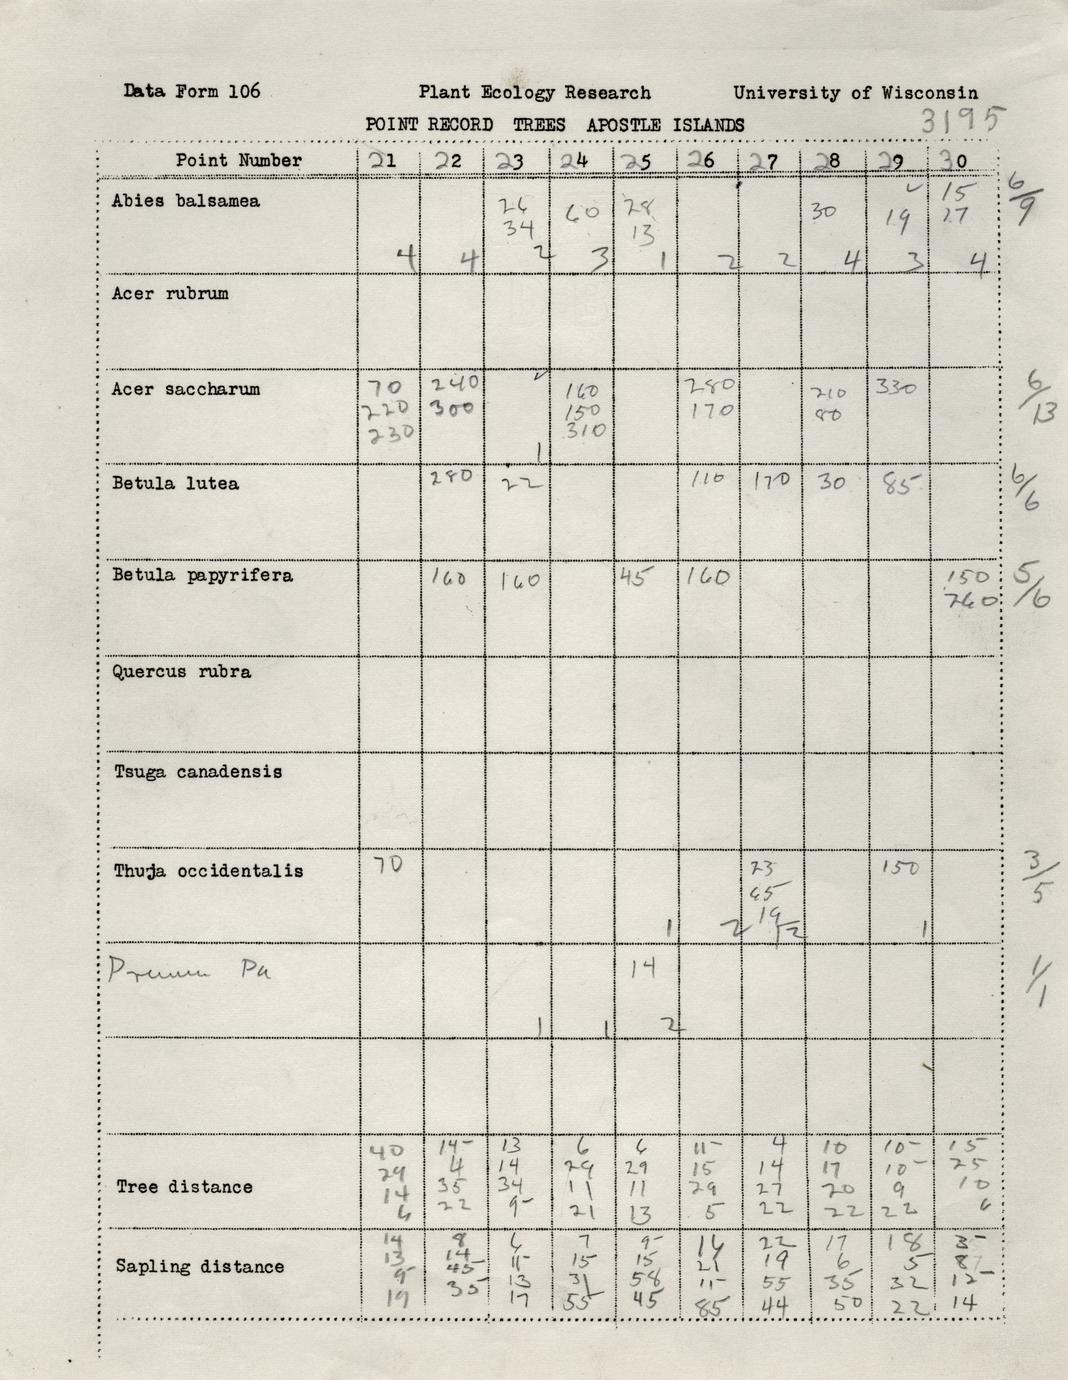 Data Form 106 Plant Ecology Research University of Wisconsin
POINT RECORD TREES APOSTLE ISLANDS 3195
Point Number 21 22 23 24 25 26 27 28 29 30
Abies balsamea 26 60 28 30 19 15 6/9
34 13 27
4 4 2 3 1 2 2 4 3 4
Acer rubrum
Acer saccharum 70 240 160 280 210 330 6/13
220 300 150 170 80
230 310
1
Betula lutea 280 22 110 170 30 85 6/6
Betula papyrifera 160 160 45 160 150 5/6
260
Quercus rubra
Tsuga canadensis
Thuja occidentalis 70 23 150 3/5
65
19
1 2 2 1
Pa 14 1/1
1 1 2
40 14 13 6 6 11 4 10 10 15
29 4 14 29 29 15 14 17 10 25
Tree distance 14 35 34 11 11 29 27 20 9 10
6 22 9 21 13 5 22 22 22 6
14 8 6 7 9 16 22 17 18
13 14 11 15 15 21 19 6 5 8
Sapling distance 9 45 13 31 58 11 55 35 32 12
19 35 17 55 45 85 44 50 22 14